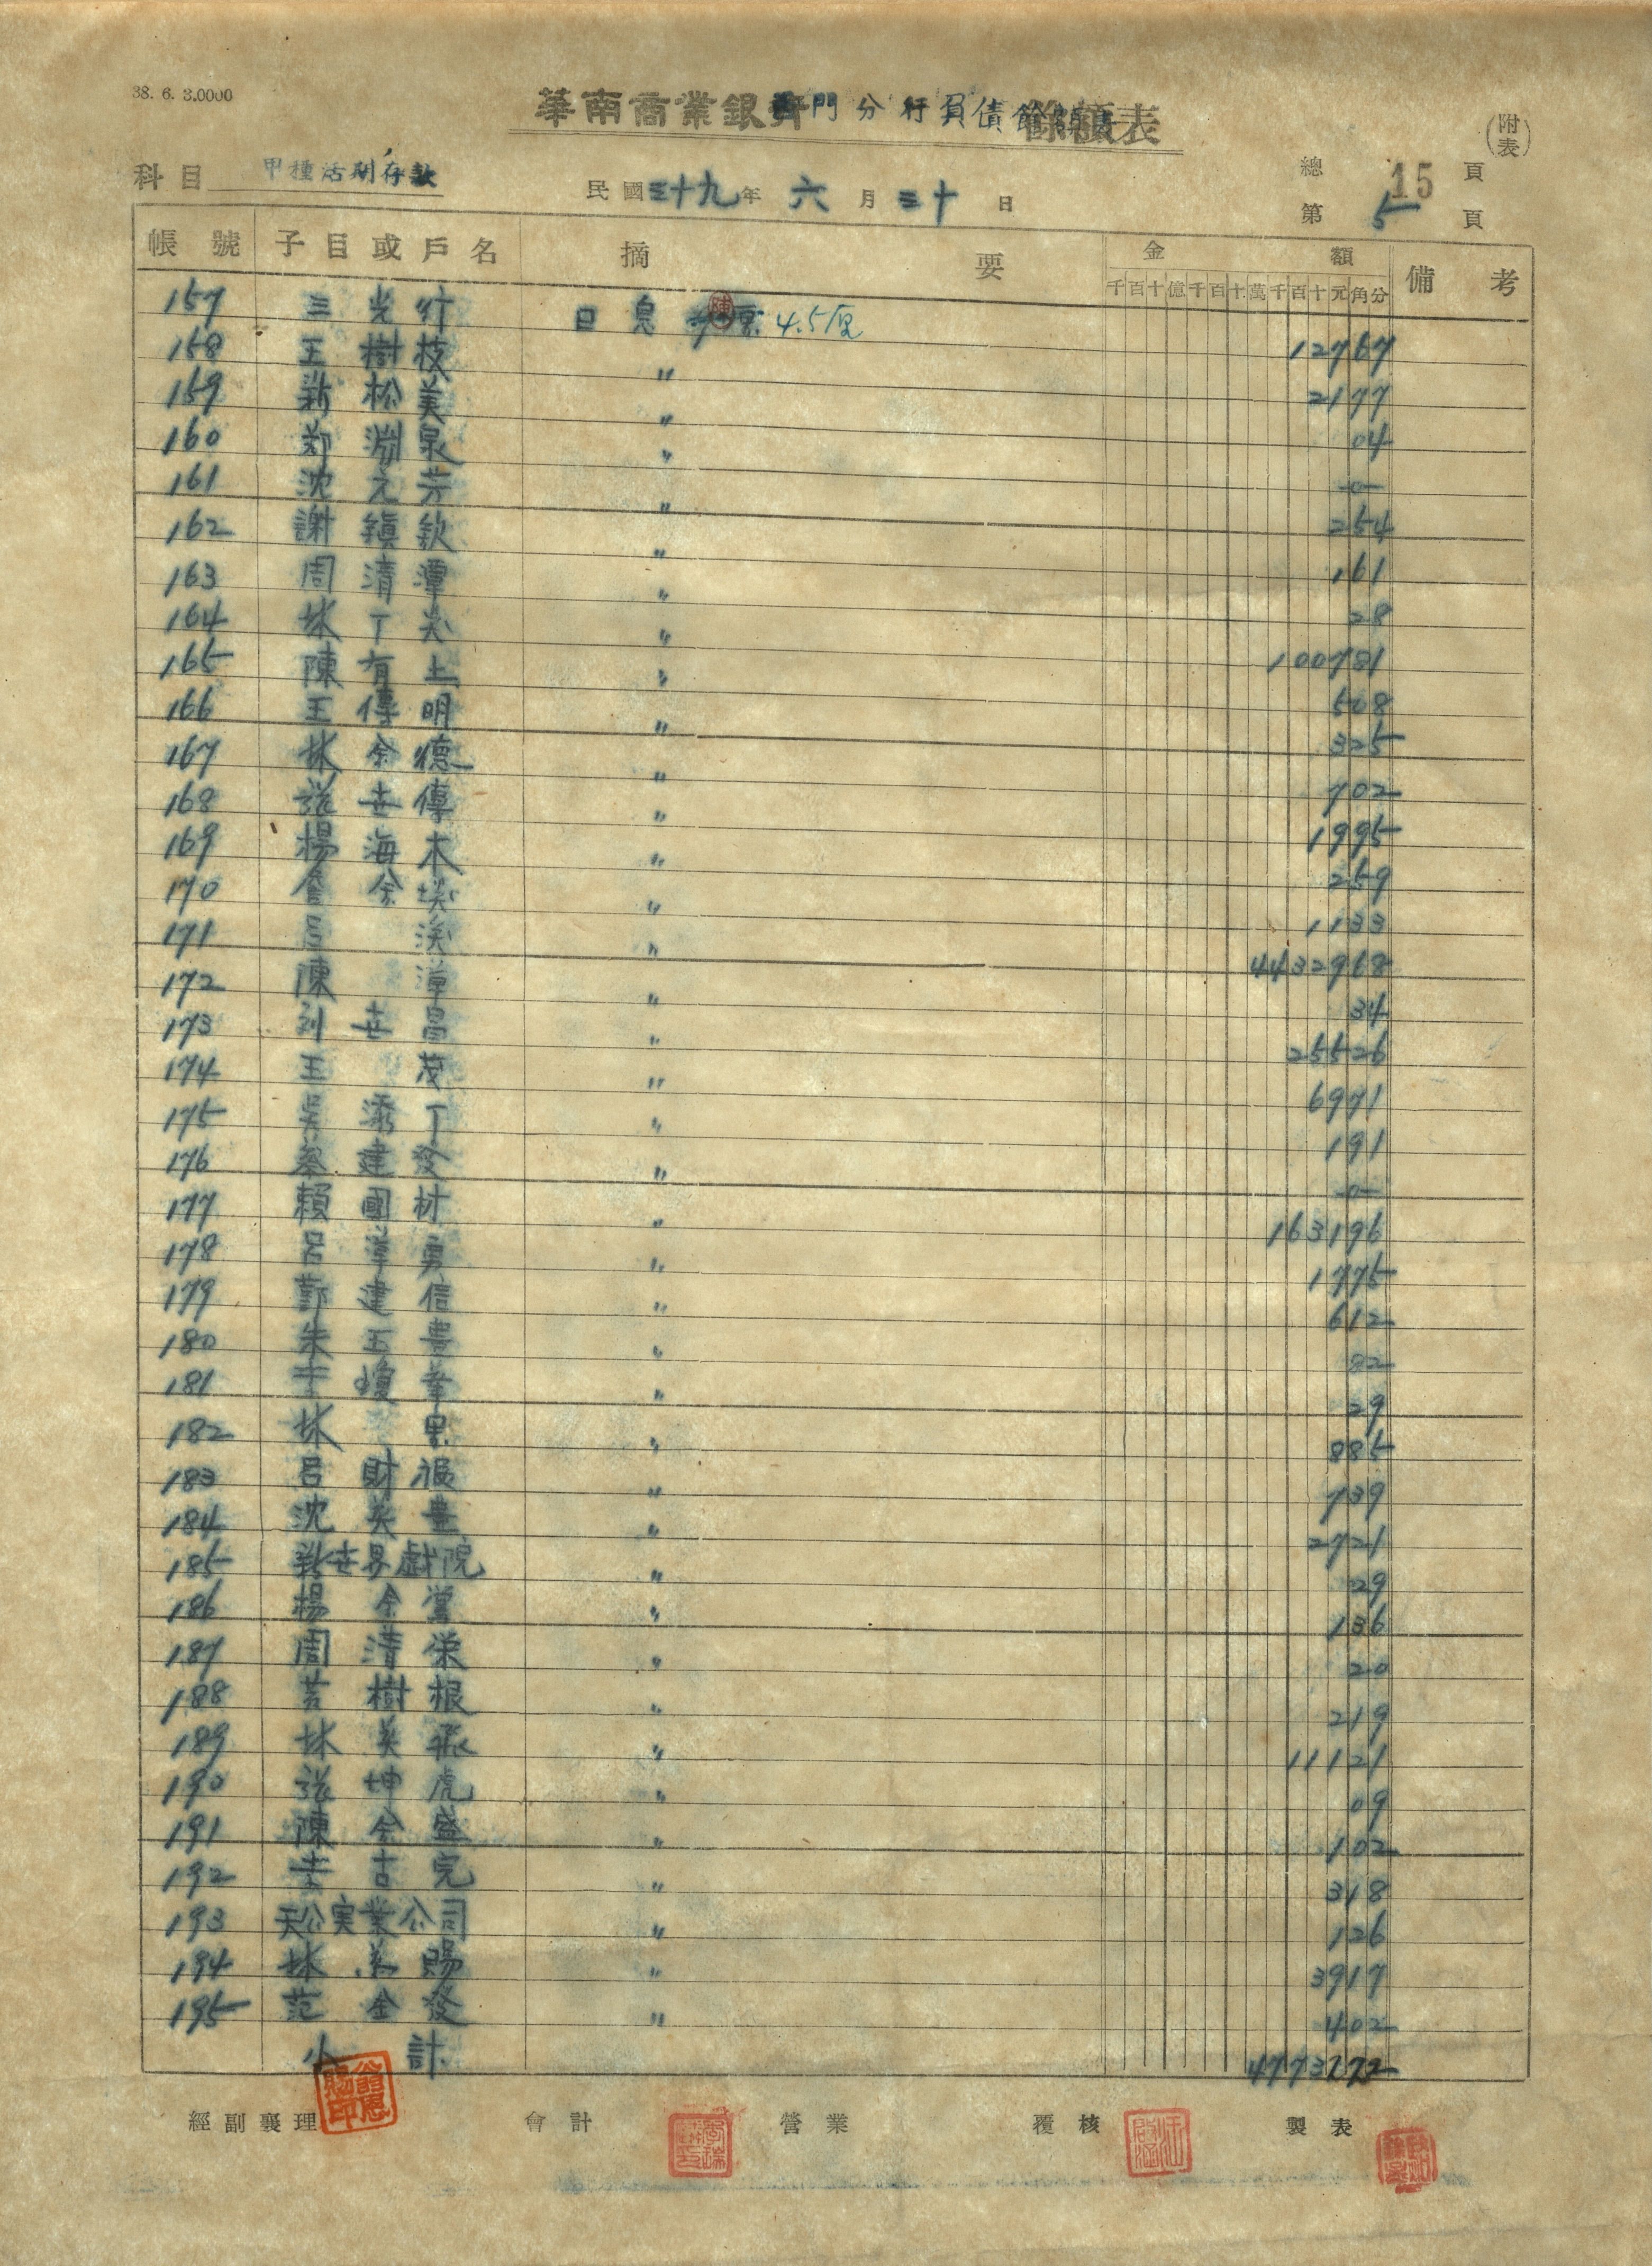 38. 6. 3.0000
華南商業銀行 門分行負債餘額表
(附表)
科目 甲種活期存款
民國三十九年 六月三十日
總 15 頁
第 5 頁
帳號 子目或戶名 摘要 金額 備考
千百十億千百十萬千百十元角分
157 三光行 日息 4.5厘 12767
158 王樹枝 〃 2177
159 新松美 〃 04
160 鄭淵泉 〃 -0-
161 沈元芳 〃 254
162 謝鎮欽 〃 161
163 周清潭 〃 28
164 林丁炎 〃 100781
165 陳有土 〃 508
166 王傳明 〃 325
167 林金德 〃 702
168 張世傳 〃 1995
169 楊海木 〃 259
170 詹金 〃 1133
171 呂 〃 4432968
172 陳 〃 34
173 列世昌 〃 25526
174 王茂 〃 6971
175 吳添丁 〃 191
176 蔡建發 〃 -0-
177 賴國材 〃 163196
178 呂 〃 1775
179 鄞建信 〃 612
180 朱玉 〃 82
181 李瓊華 〃 29
182 林 〃 885
183 呂財福 〃 739
184 沈英 〃 2721
185 新世界戲院 〃 29
186 楊金 〃 136
187 周清榮 〃 20
188 樹根 〃 219
189 林英 〃 11121
190 張坤虎 〃 09
191 陳金盛 〃 102
192 李古完 〃 318
193 天公実業公司 〃 126
194 林 賜 〃 3917
195 范金發 〃 402
小計 4773172
經副襄理 會計 營業 覆核 製表